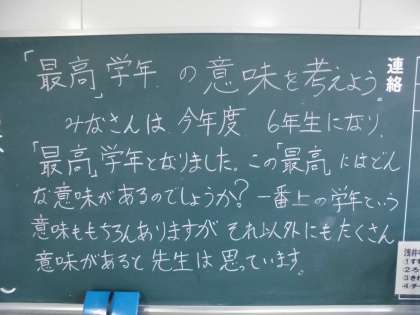 「最高」学年 の意味を考えよう。
みなさんは 今年度 6年生になり、
「最高」学年となりました。この「最高」にはどん
な意味があるのでしょうか? 一番上の学年という
意味ももちろんありますが それ以外にもたくさん
意味があると先生は思っています。
連絡